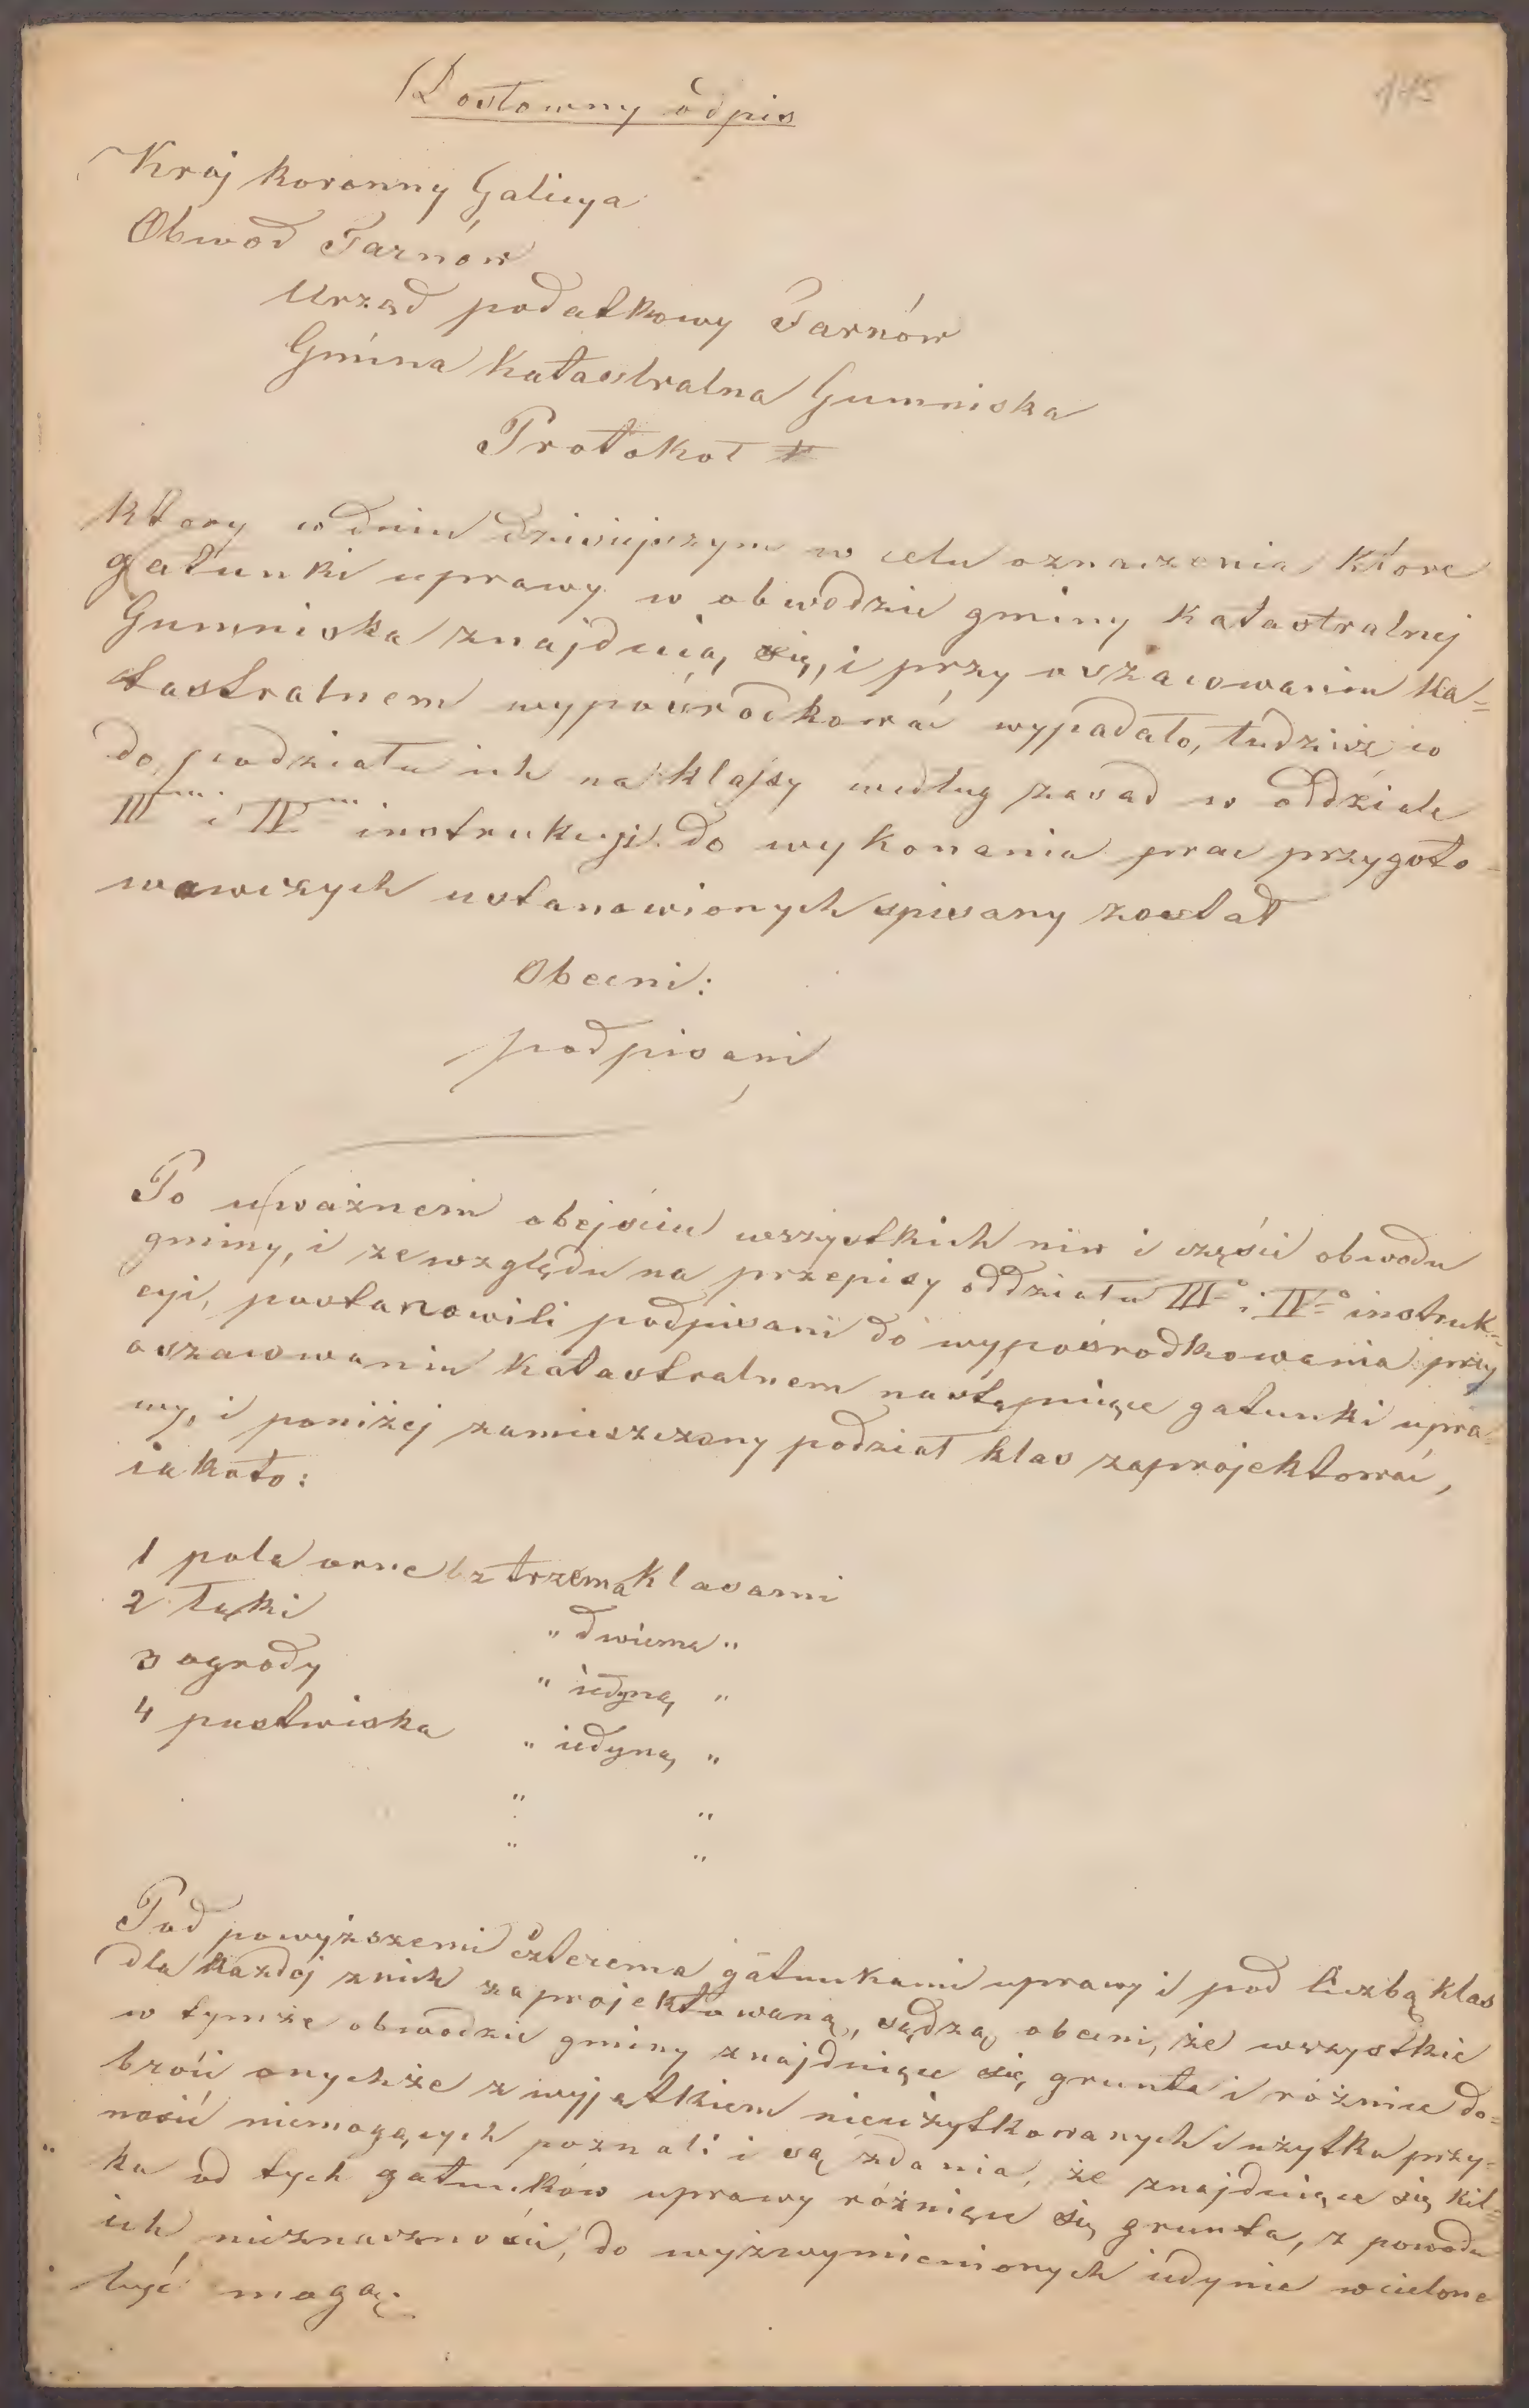 Dosłowny odpis
145
Kraj koronny Galicya
Obwod Tarnów
Urząd podatkowy Tarnów
Gmina Katastralna Gumniska
Protokoł
który w dniu dzisiejszym w celu oznaczenia które
gatunki uprawy w obwodzie gminy katastralnej
Gumniska znajduią się, i przy oszacowaniu ka=
tastralnem wypośrodkować wypadało, tudzież co
do podziału ich na klassy według zasad w oddziale
III i IV instrukcyi do wykonania prac przygoto=
wawczych ustanowionych spisany został
Obecni:
podpisani
Po uważnem obejściu wszystkich niw i części obwodu
gminy, i ze względu na przepisy oddziału IIIo i IVo instruk=
cyi, postanowili podpisani do wypośrodkowania przy
oszacowaniu katastralnem następuiące gatunki upra=
wy, i poniżej zamieszczony podział klas zaprojektować,
iakoto:
1 pola orne z trzema klasami
2 łąki " dwiema "
3 ogrody " iedyną "
4 pastwiska " iedyną "
" "
" "
Pod powyższemi czterema gatunkami uprawy i pod liczbą klas
dla każdej znich zaprojektowaną, sądzą obecni, że wszystkie
w tymże obwodzie gminy znajduiące się grunta i różnice do=
broci onychże z wyjątkiem nieużytkowanych i użytku przy=
nosić niemogących poznali i są zdania, że znajduiące się kil=
ka od tych gatunków uprawy różniące się grunta, z powodu
ich nieznaczności, do wyżwymienionych iedynie wcielone
być mogą.